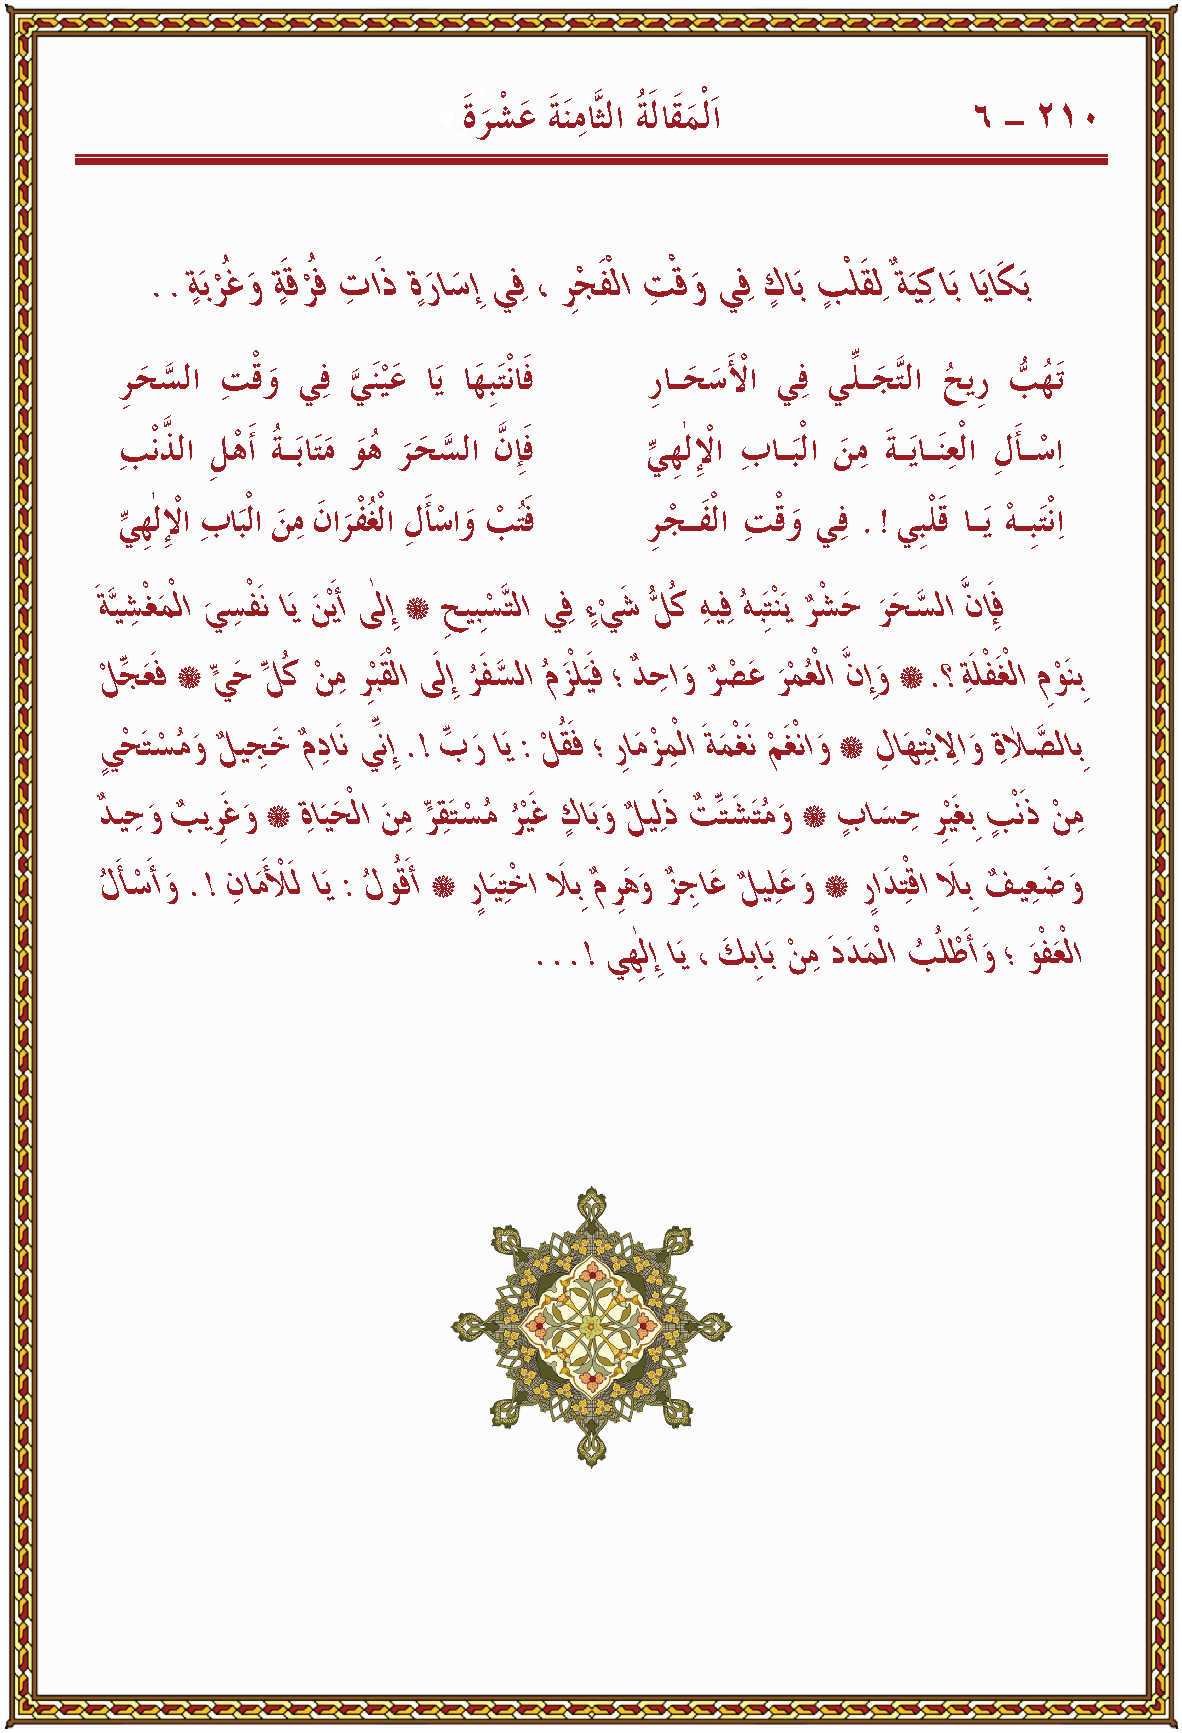 ٢١٠ – ٦ اَلْمَقَالَةُ الثَّامِنَةَ عَشْرَةَ
بَكَايَا بَاكِيَةٌ لِقَلْبٍ بَاكٍ فِي وَقْتِ الْفَجْرِ ، فِي إِسَارَةٍ ذَاتِ فُرْقَةٍ وَغُرْبَةٍ . .
تَهُبُّ رِيحُ التَّجَـلِّي فِي الْأَسَحَـارِ فَانْتَبِهَا يَا عَيْنَيَّ فِي وَقْتِ السَّحَرِ
اِسْـأَلِ الْعِنَـايَـةَ مِنَ الْبَـابِ الْإِلٰهِيِّ فَإِنَّ السَّحَرَ هُوَ مَتَابَـةُ أَهْلِ الذَّنْبِ
اِنْتَبِـهْ يَـا قَلْبِي ! . فِي وَقْتِ الْفَـجْرِ فَتُبْ وَاسْأَلِ الْغُفْرَانَ مِنَ الْبَابِ الْإِلٰهِيِّ
فَإِنَّ السَّحَرَ حَشْرٌ يَنْتَبِهُ فِيهِ كُلُّ شَيْءٍ فِي التَّسْبِيحِ ۞ إِلٰى أَيْنَ يَا نَفْسِيَ الْمَغْشِيَّةَ
بِنَوْمِ الْغَفْلَةِ ؟. ۞ وَإِنَّ الْعُمْرَ عَصْرٌ وَاحِدٌ ؛ فَيَلْزَمُ السَّفَرُ إِلَى الْقَبْرِ مِنْ كُلِّ حَيٍّ ۞ فَعَجِّلْ
بِالصَّلَاةِ وَالِابْتِهَالِ ۞ وَانْغَمْ نَغْمَةَ الْمِزْمَارِ ؛ فَقُلْ : يَا رَبِّ ! . إِنِّي نَادِمٌ خَجِيلٌ وَمُسْتَحْيٍ
مِنْ ذَنْبٍ بِغَيْرِ حِسَابٍ ۞ وَمُتَشَتِّتٌ ذَلِيلٌ وَبَاكٍ غَيْرُ مُسْتَقِرٍّ مِنَ الْحَيَاةِ ۞ وَغَرِيبٌ وَحِيدٌ
وَضَعِيفٌ بِلَا اقْتِدَارٍ ۞ وَعَلِيلٌ عَاجِزٌ وَهَرِمٌ بِلَا اخْتِيَارٍ ۞ أَقُولُ : يَا لَلْأَمَانِ ! . وَأَسْأَلُ
الْعَفْوَ ؛ وَأَطْلُبُ الْمَدَدَ مِنْ بَابِكَ ، يَا إِلٰهِي ! . . .